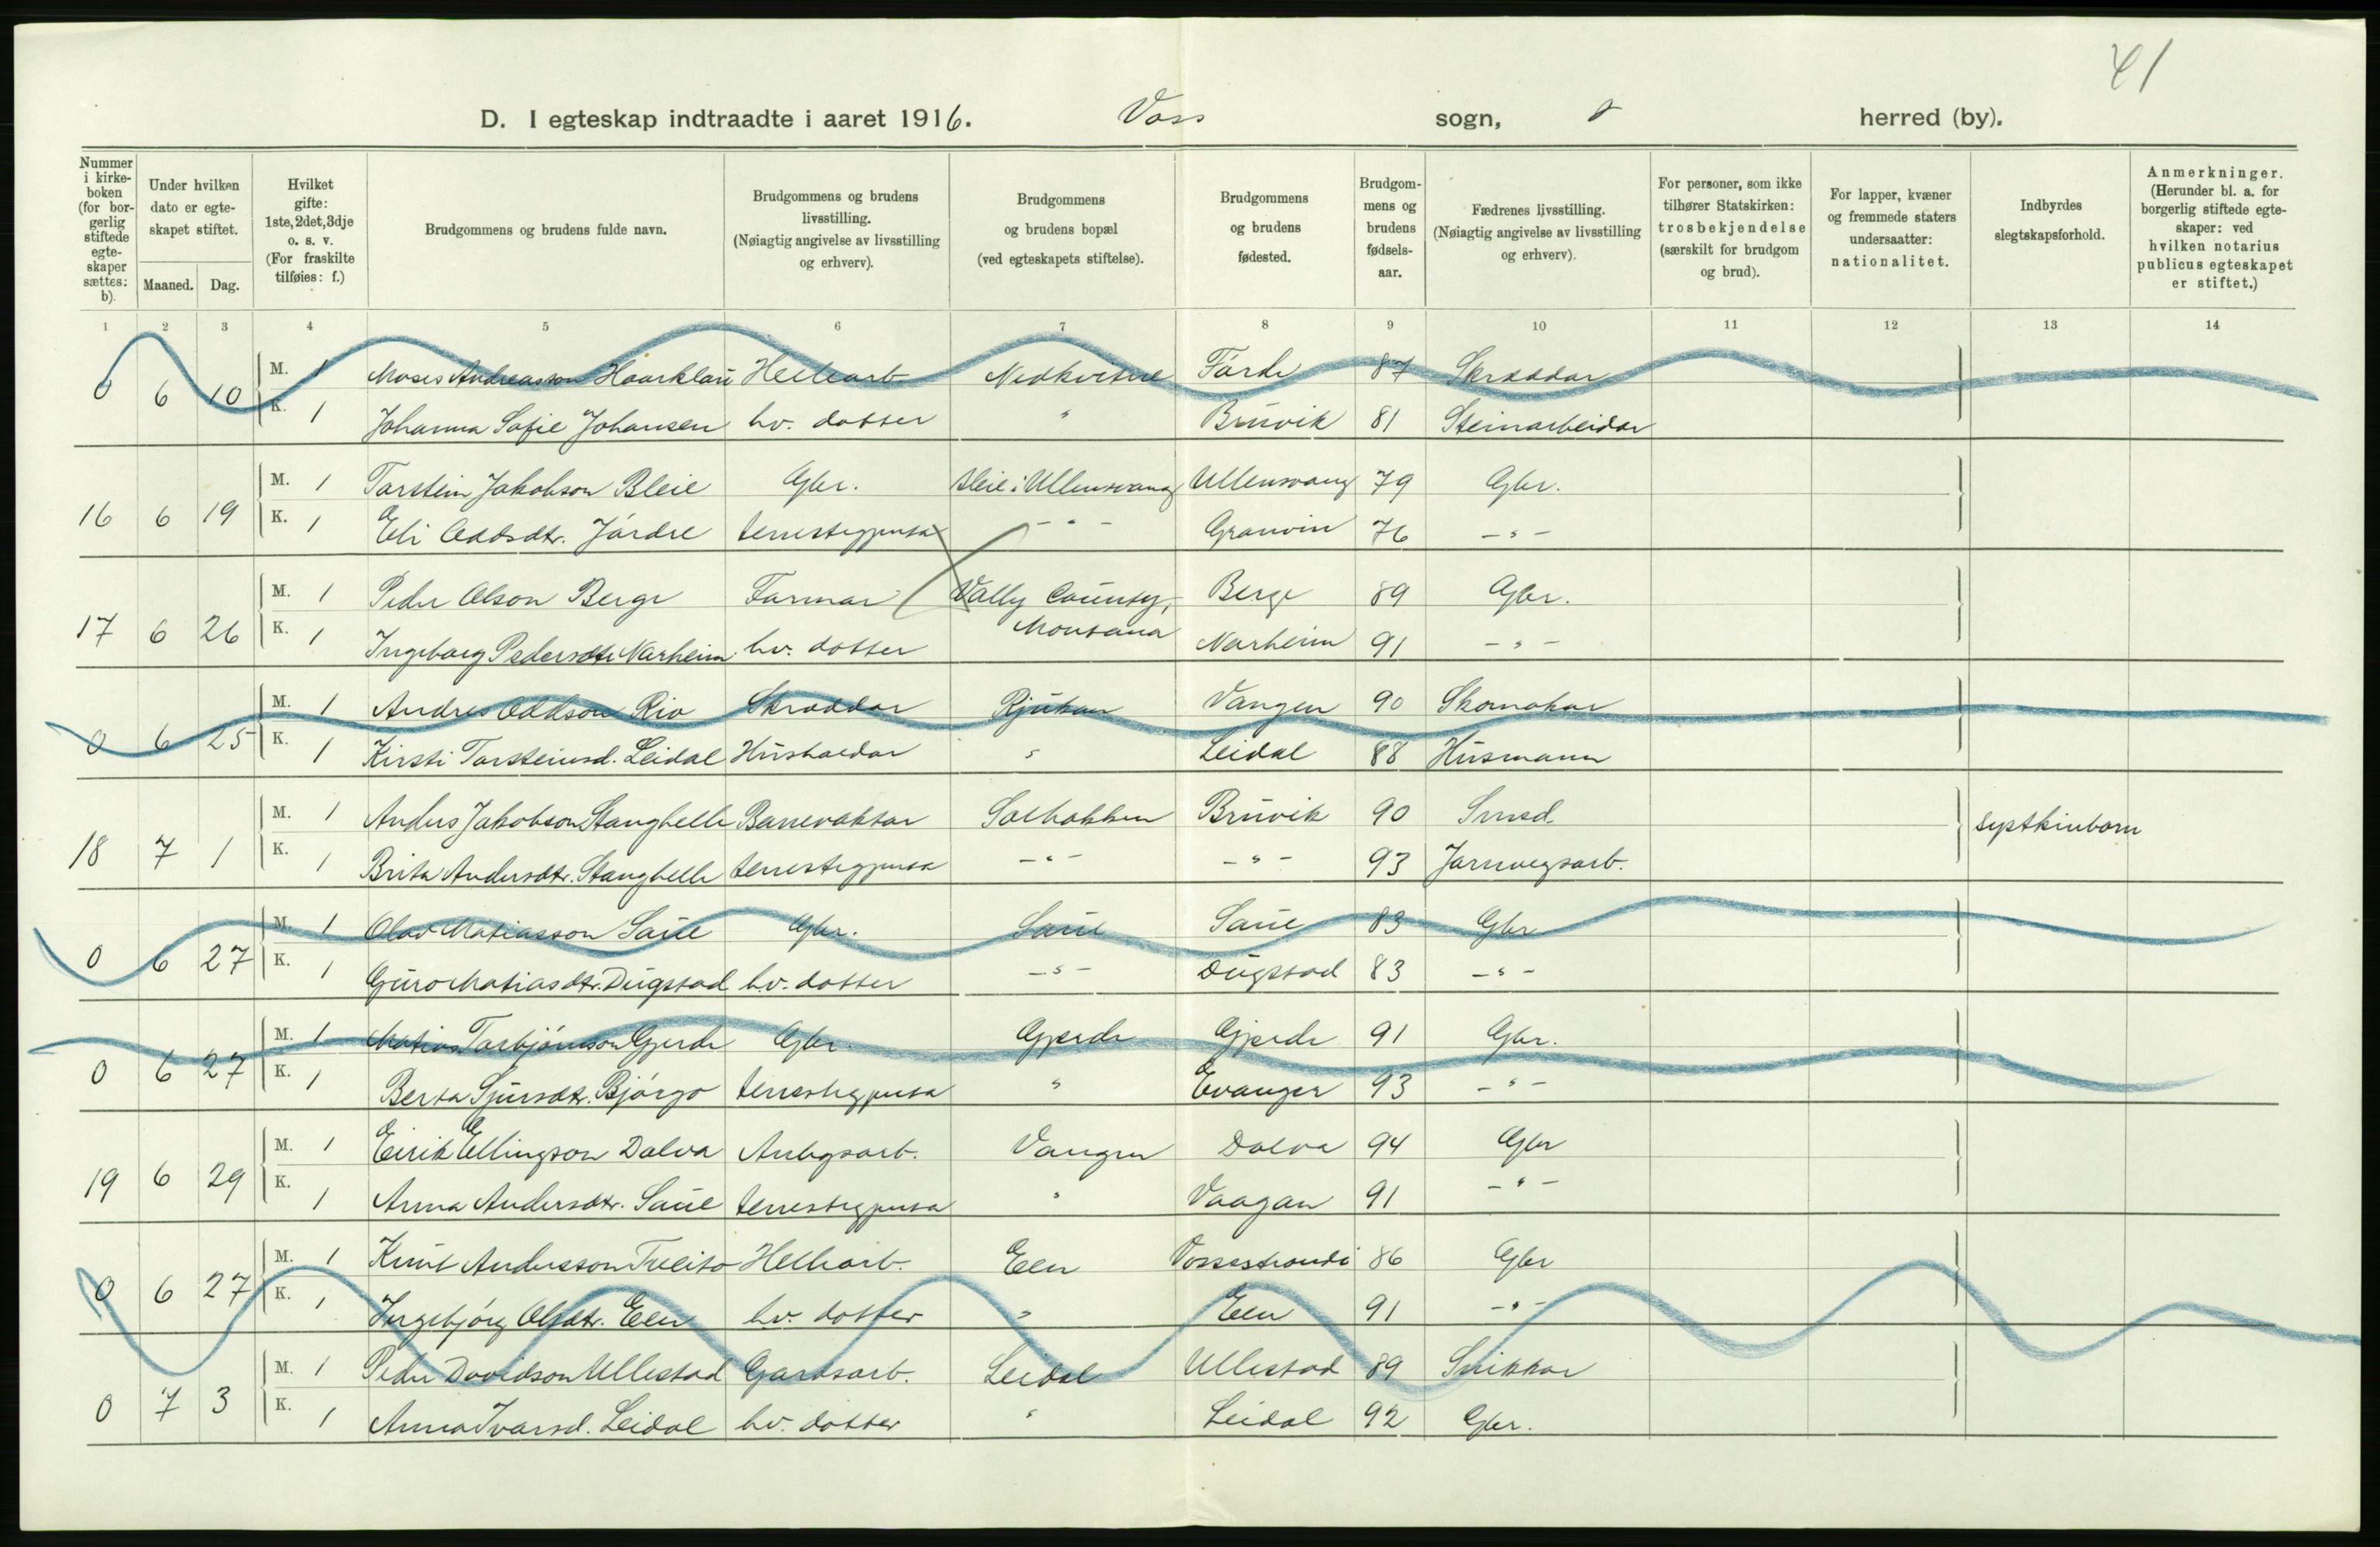 41
D. I egteskap indtraadte i aaret 1916. Voss sogn, herred (by).
Nummer i kirkeboken (for borgerlig stiftede egteskaper sættes: b).
Under hvilken dato er egteskapet stiftet.
Maaned. Dag.
Hvilket gifte: 1ste, 2det, 3dje o. s. v. (For fraskilte tilføies: f.)
Brudgommens og brudens fulde navn.
Brudgommens og brudens livsstilling. (Nøiagtig angivelse av livsstilling og erhverv).
Brudgommens og brudens bopæl (ved egteskapets stiftelse).
Brudgommens og brudens fødested.
Brudgommens og brudens fødselsaar.
Fædrenes livsstilling. (Nøiagtig angivelse av livsstilling og erhverv).
For personer, som ikke tilhører Statskirken: trosbekjendelse (særskilt for brudgom og brud).
For lapper, kvæner og fremmede staters undersaatter: nationalitet.
Indbyrdes slegtskapsforhold.
Anmerkninger. (Herunder bl. a. for borgerlig stiftede egteskaper: ved hvilken notarius publicus egteskapet er stiftet.)
1 2 3 4 5 6 7 8 9 10 11 12 13 14
0 6 10 M. 1 Moses Andreasson Haarklau Hellearb. Nedkvitne Førde 87 Skraddar
K. 1 Johanna Sofie Johansen hv. dotter " Bruvik 81 Steinarbeidar
16 6 19 M. 1 Torstein Jakobson Bleie Gbr. Bleie i Ullensvang Ullensvang 79 Gbr.
K. 1 Eli Oddsdtr. Jørdre tenestegjenta - " - Granvin 76 - " -
17 6 26 M. 1 Peder Olson Berge Farmar Vally County, Montana Berge 89 Gbr.
K. 1 Ingeborg Pedersdtr Narheim hv. dotter Narheim 91 - " -
0 6 25 M. 1 Andres Oddson Rio Skraddar Rjukan Vangen 90 Skomakar
K. 1 Kirsti Torsteinsd. Leidal Hushaldar " Leidal 88 Husmann
18 7 1 M. 1 Anders Jakobson Stanghelle Banevaktar Solbakken Bruvik 90 Smed syskinborn
K. 1 Brita Andersdtr. Stanghelle tenestegjenta - " - - " - 93 Jarnvegsarb.
0 6 27 M. 1 Olav Matiasson Saue Gbr. Saue Saue 83 Gbr
K. 1 Guro Matiasdtr. Dugstad hv. dotter - " - Dugstad 83 - " -
0 6 27 M. 1 Matias Torbjørnson Gjerde Gbr. Gjerde Gjerde 91 Gbr.
K. 1 Berta Sjursdtr. Bjørgo tenestegjenta " Evanger 93 - " -
19 6 29 M. 1 Eirik Ellingson Dalva Anlegsarb. Vangen Dalva 94 Gbr
K. 1 Anna Andersdtr. Saue tenestegjenta " Vaagan 91 - " -
0 6 27 M. 1 Knut Andersson Tveito Hellearb. Een Vossestrandi 86 Gbr
K. 1 Ingebjørg Olsdtr. Een hv. dotter " Een 91 - " -
0 7 3 M. 1 Peder Davidson Ullestad Gardsarb. Leidal Ullestad 89 Snikkar
K. 1 Anna Ivarsd. Leidal hv. dotter " Leidal 92 Gbr.